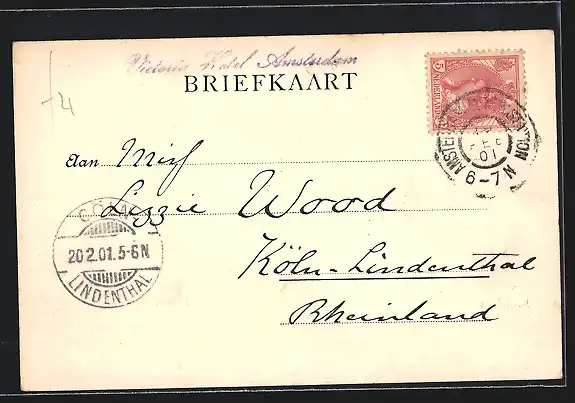 Victoria Hotel Amsterdam
BRIEFKAART
5
NEDERLAND
AMSTERDAM
01
6-7N
Aan Miss
Lizzie Wood
Köln-Lindenthal
Rheinland
CÖLN
20.2.01.5-6N
LINDENTHAL